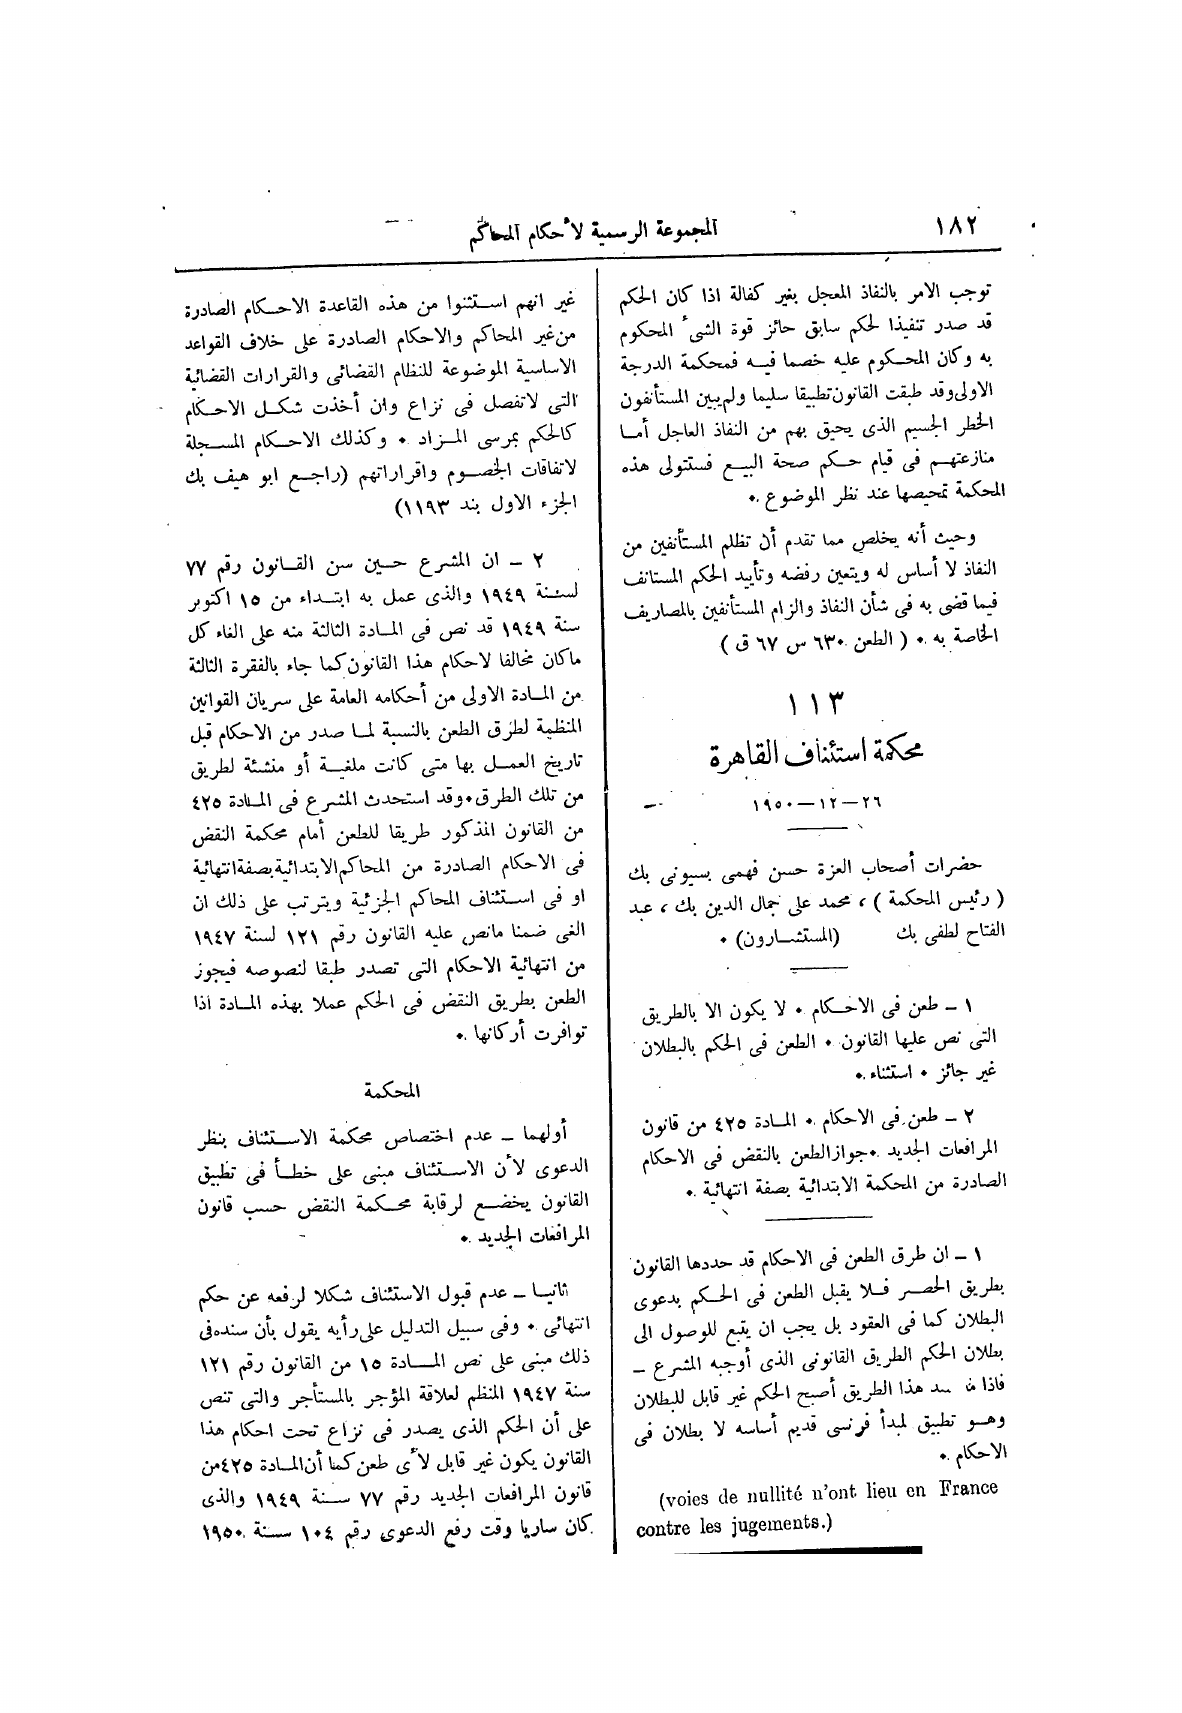 ١٨٢
المجموعة الرسمية لأحكام المحاكم
توجب الامر بالنفاذ المعجل بغير كفالة اذا كان الحكم
قد صدر تنفيذا لحكم سابق حائز قوة الشىء المحكوم
به وكان المحكوم عليه خصما فيه فمحكمة الدرجة
الاولى وقد طبقت القانون تطبيقا سليما ولم يبين المستأنفون
الخطر الجسيم الذى يحيق بهم من النفاذ العاجل أما
منازعتهم فى قيام حكم صحة البيع فستتولى هذه
المحكمة تمحيصها عند نظر الموضوع ٠
وحيث أنه يخلص مما تقدم أن تظلم المستأنفين من
النفاذ لا أساس له ويتعين رفضه وتأييد الحكم المستانف
فيما قضى به فى شأن النفاذ والزام المستأنفين بالمصاريف
الخاصة به ٠ ( الطعن ٦٣٠ س ٦٧ ق )
١١٣
محكمة استئناف القاهرة
٢٦–١٢–١٩٥٠
حضرات أصحاب العزة حسن فهمى بسيونى بك
( رئيس المحكمة ) ، محمد على جمال الدين بك ، عبد
الفتاح لطفى بك (المستشارون) ٠
١ – طعن فى الاحكام ٠ لا يكون الا بالطريق
التى نص عليها القانون ٠ الطعن فى الحكم بالبطلان
غير جائز ٠ استثناء ٠
٢ – طعن فى الاحكام ٠ المادة ٤٢٥ من قانون
المرافعات الجديد ٠ جواز الطعن بالنقض فى الاحكام
الصادرة من المحكمة الابتدائية بصفة انتهائية ٠
١ – ان طرق الطعن فى الاحكام قد حددها القانون
بطريق الحصر فلا يقبل الطعن فى الحكم بدعوى
البطلان كما فى العقود بل يجب ان يتبع للوصول الى
بطلان الحكم الطريق القانونى الذى أوجبه المشرع –
فاذا هذا الطريق أصبح الحكم غير قابل للبطلان
وهو تطبيق لمبدأ فرنسى قديم أساسه لا بطلان فى
الاحكام ٠
(voies de nullité n'ont lieu en France
contre les jugements.)
غير انهم استثنوا من هذه القاعدة الاحكام الصادرة
من غير المحاكم والاحكام الصادرة على خلاف القواعد
الاساسية الموضوعة للنظام القضائى والقرارات القضائية
التى لاتفصل فى نزاع وان أخذت شكل الاحكام
كالحكم بمرسى المزاد ٠ وكذلك الاحكام المسجلة
لاتفاقات الخصوم واقراراتهم (راجع ابو هيف بك
الجزء الاول بند ١١٩٣)
٢ – ان المشرع حين سن القانون رقم ٧٧
لسنة ١٩٤٩ والذى عمل به ابتداء من ١٥ اكتوبر
سنة ١٩٤٩ قد نص فى المادة الثالثة منه على الغاء كل
ماكان مخالفا لاحكام هذا القانون كما جاء بالفقرة الثالثة
من المادة الاولى من أحكامه العامة على سريان القوانين
المنظمة لطرق الطعن بالنسبة لما صدر من الاحكام قبل
تاريخ العمل بها متى كانت ملغية أو منشئة لطريق
من تلك الطرق ٠ وقد استحدث المشرع فى المادة ٤٢٥
من القانون المذكور طريقا للطعن أمام محكمة النقض
فى الاحكام الصادرة من المحاكم الابتدائية بصفة انتهائية
او فى استئناف المحاكم الجزئية ويترتب على ذلك ان
الغى ضمنا مانص عليه القانون رقم ١٢١ لسنة ١٩٤٧
من انتهائية الاحكام التى تصدر طبقا لنصوصه فيجوز
الطعن بطريق النقض فى الحكم عملا بهذه المادة اذا
توافرت أركانها ٠
المحكمة
أولهما – عدم اختصاص محكمة الاستئناف بنظر
الدعوى لأن الاستئناف مبنى على خطأ فى تطبيق
القانون يخضع لرقابة محكمة النقض حسب قانون
المرافعات الجديد ٠
ثانيا – عدم قبول الاستئناف شكلا لرفعه عن حكم
انتهائى ٠ وفى سبيل التدليل على رأيه يقول بأن سنده فى
ذلك مبنى على نص المادة ١٥ من القانون رقم ١٢١
سنة ١٩٤٧ المنظم لعلاقة المؤجر بالمستأجر والتى تنص
على أن الحكم الذى يصدر فى نزاع تحت احكام هذا
القانون يكون غير قابل لأى طعن كما أن المادة ٤٢٥ من
قانون المرافعات الجديد رقم ٧٧ سنة ١٩٤٩ والذى
كان ساريا وقت رفع الدعوى رقم ١٠٤ سنة ١٩٥٠